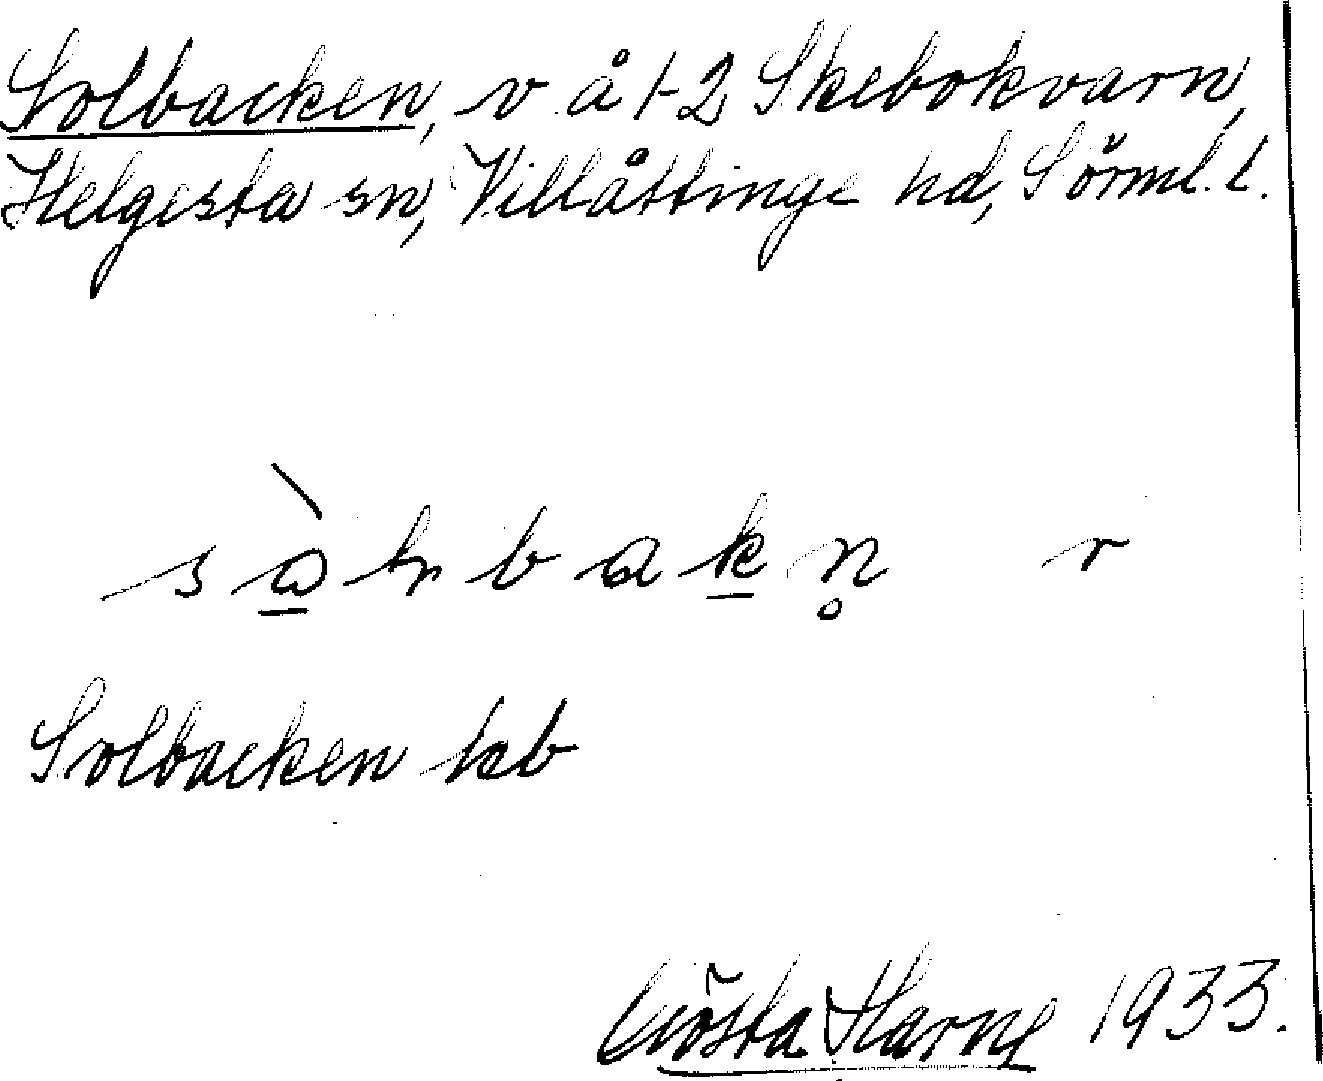 Solbacken, v å 1-2 Skebokvarn,
Helgesta sn, Villåttinge hd, Sörml. l.
r
Solbacken kb
Gösta Harne 1933.